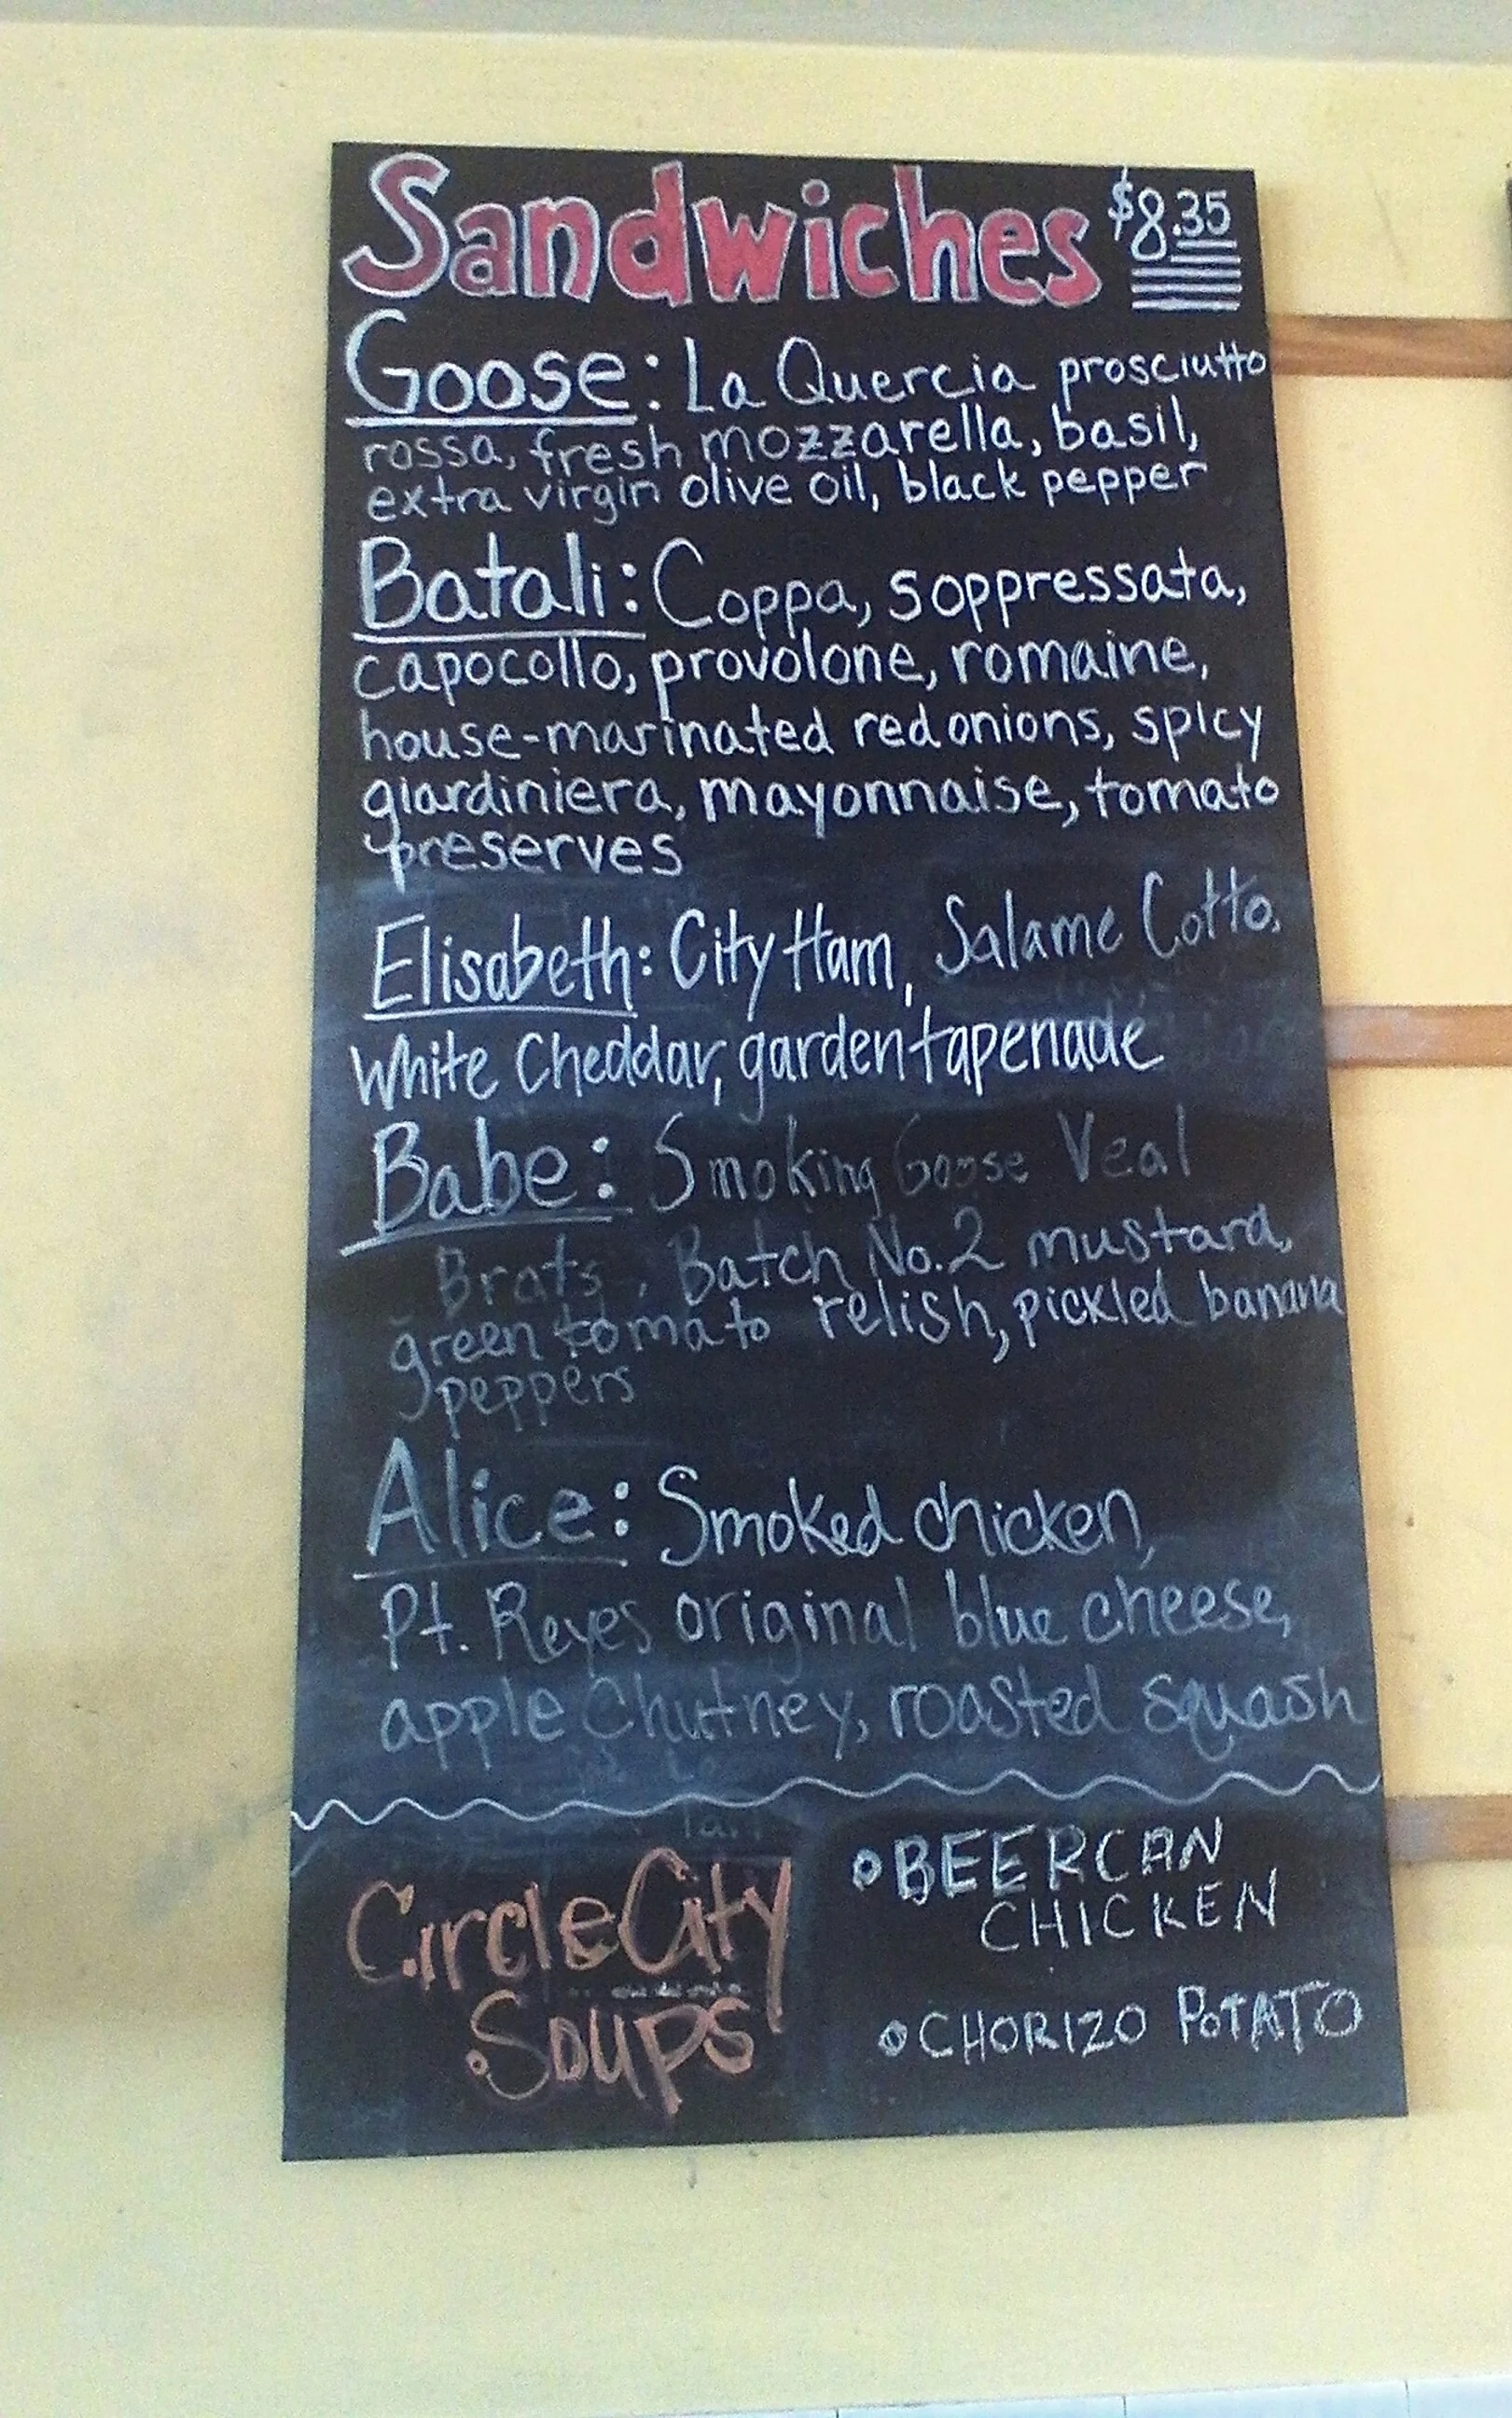 Sandwiches $8.35
Goose: La Quercia prosciutto
rossa, fresh mozzarella, basil,
extra virgin olive oil, black pepper
Batali: Coppa, soppressata,
capocollo, provolone, romaine,
house-marinated red onions, spicy
giardiniera, mayonnaise, tomato
preserves
Elisabeth: City Ham, Salame Cotto,
White Cheddar, garden tapenade
Babe: Smoking Goose Veal
Brats, Batch No.2 mustard,
green tomato relish, pickled banana
peppers
Alice: Smoked chicken,
Pt. Reyes original blue cheese,
apple Chutney, roasted squash
Circle City
Soups
BEERCAN
CHICKEN
CHORIZO POTATO